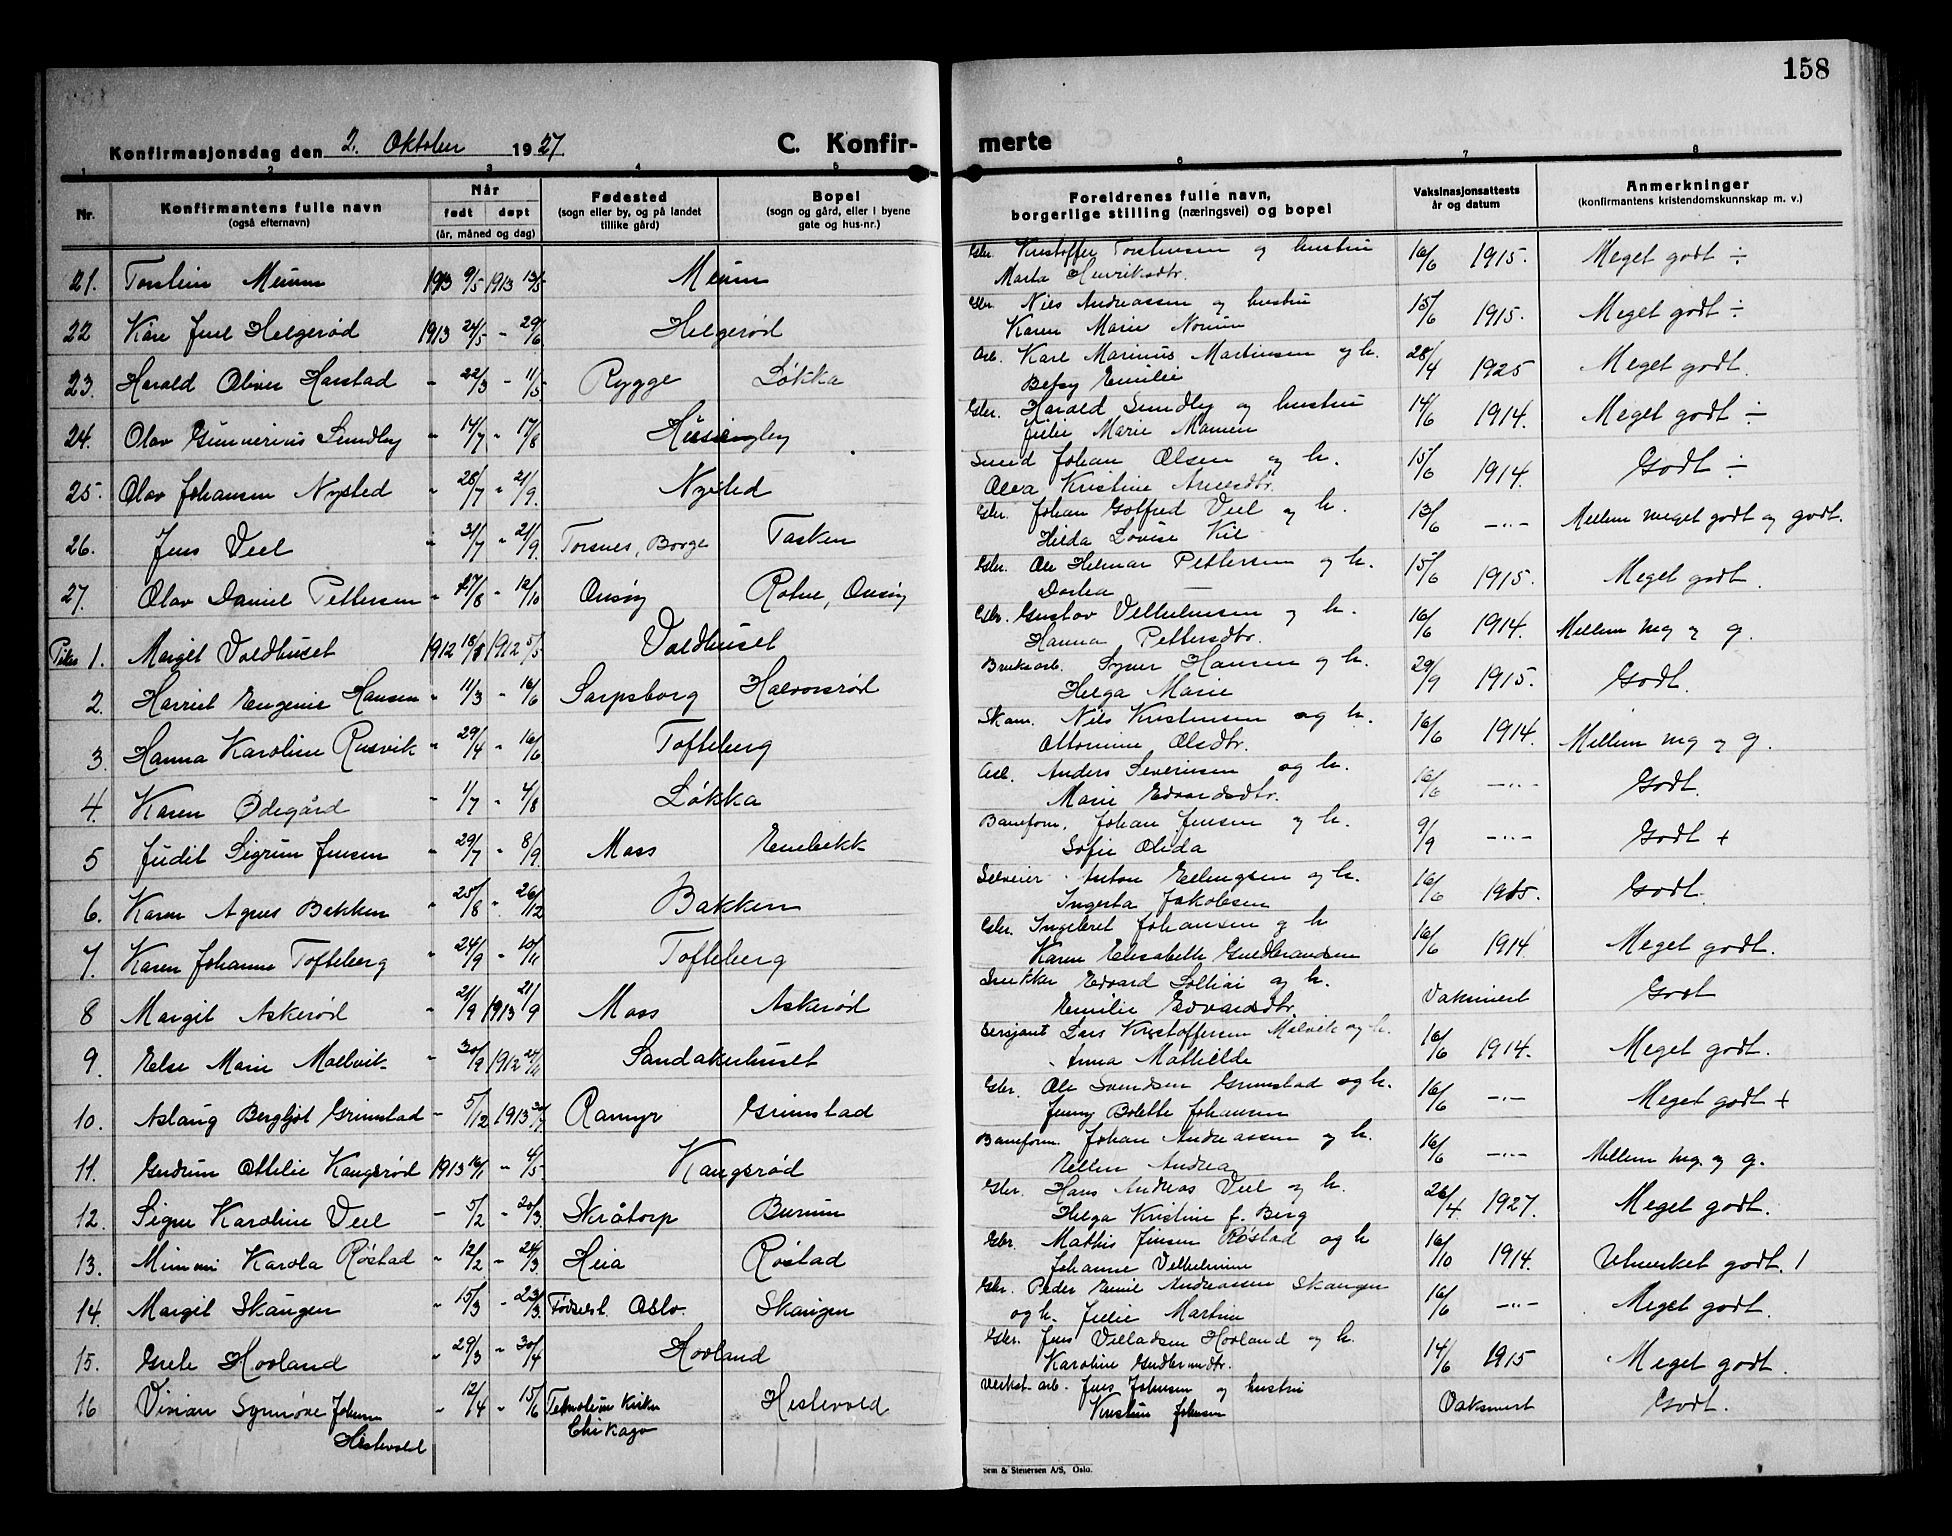 158
Konfirmasjonsdag den 2. Oktober 1927
C. Konfirmerte
1 2 3 4 5 6 7 8
Nr.
Konfirmantens fulle navn
(også efternavn)
Når
født døpt
(år, måned og dag)
Fødested
(sogn eller by, og på landet
tillike gård)
Bopel
(sogn og gård, eller i byene
gate og hus-nr.)
Foreldrenes fulle navn,
borgerlige stilling (næringsvei) og bopel
Vaksinasjonsattests
år og datum
Anmerkninger
(konfirmantens kristendomskunnskap m. v.)
21. Torstein Meum 1913 9/5 1913 13/5 Meum Gbr. Kristoffer Torstensen og hustru 16/6 1915. Meget godt ÷
Marta Henriksdtr.
22 Kåre Juel Helgerød 1913 24/5 - 29/6 Helgerød Gbr. Nils Andreassen og hustru 15/6 1915. Meget godt ÷
Karen Marie Norum
23. Harald Oliver Harstad - 22/3 - 11/5 Rygge Løkka Arb. Karl Marinus Martinsen og h. 28/4 1925 Meget godt.
Betsy Emilie
24. Olav Gunnerius Sundby - 14/7 - 17/8 Gbr. Harald Sundby og hustru 14/6 1914. Meget godt ÷
Julie Marie
25. Olav Johansen Nysted " 28/7 " 21/9. Nysted Smed Johan Olsen og h. 15/6 1914. Godt ÷
Olea Kristine
26. Jens Veel " 31/7 " 21/9. Torsnes, Borge Tasken Gbr. Johan Gotfred Veel og h. 13/6 —"— Mellem meget godt og godt.
Hilda Lovise
27. Olav Daniel Pettersen " 27/8 - 12/10 Onsøy Rotne, Onsøy Gbr. Ole Helmar Pettersen og h. 15/6 1915. Meget godt.
Dortea —
Piker 1. Margit Voldhuset 1912 18/1 1912 5/5 Voldhuset Gbr. Gustav Vilhelmsen og h. 16/6 1914. Mellem mg og g.
Hanna Pettersdtr.
2. Harriet Eugenie Hansen " 11/3 - 16/6 Sarpsborg Halvorsrød Bruksarb. Syver Hansen og h. 29/9 1915. Godt.
Helga Marie
3. Hanna Karoline Rusvik " 29/4 - 16/6 Tofteberg Skom. Nils Kristensen og h. 16/6 1914. Mellem mg og g.
Ottomine Olsdtr.
4. Karen Ødegård - 1/7 - 4/8 Løkka Arb. Anders Severinsen og h. 16/6 —"— Godt.
Marie Edvardsdtr.
5 Judit Sigrun Jensen - 29/7 - 8/9. Moss Enebekk Baneform. Johan Jensen og h. 9/9 —"— Godt +
Sofie Olida
6. Karen Agnes Bakken " 25/8 - 26/12 Bakken Selveier Anton Ellingsen og h. 16/6 1915. Godt.
Ingerta Jakobsen
7. Karen Johanne Tofteberg " 24/9 - 10/11 Tofteberg Gbr. Ingebret Johansen og h 16/6 1914. Meget godt.
Karen Elisabeth Guldbrandsen
8 Margit Askerød - 21/9 1913 21/9 Moss Askerød Snekker Edvard og h. Vaksinert Godt
Emilie Edvardsdtr.
9. Else Marie Mollvik - 30/9 1912 24/11 Sandakerhuset Sersjant Lars Kristoffersen Molvik og h. 16/6 1914. Meget godt.
Anna Mathilde
10. Aslaug Bergljot Grimstad - 5/12 1913 Grimstad Gbr. Ole Svendsen Grimstad og h. 16/6 —"— Meget godt +
Jenny Bolette Johansen
11. Gudrun Ottilie Kangsrød 1913 16/1 - 4/5 Kangsrød Baneform. Johan Andreassen og h. 16/6 —"— Mellem mg. og g.
Ellen Andrea
12. Signe Karoline Veel - 5/2 - 20/3 Skråtorp Burum Gbr. Hans Andreas Veel og h. 26/4. 1927. Meget godt.
Helga Kristine f. Berg
13. Mimmi Karola Røstad " 12/2 - 24/3 Heia Røstad Gbr. Mathis Jensen Røstad og h 16/10 1914. Utmerket godt. !
Johanne Vilhelmine
14. Margit Skaugen " 15/3 - 23/3 Fødselst. Oslo. Skaugen Gbr. Peder Emil Andreassen Skaugen 16/6 —"— Meget godt.
og h. Julie Martine
15. Grete Hovland " 29/3 " 30/4 Hovland Gbr. Jens Villadsen Hovland og h. 14/6 1915 Meget godt.
Karoline Gudbrandtr.
16 Vivian Synnøve Johnsen " 12/4 - 15/6 Hestevold Verkst. arb. Jens Johnsen og hustru Vaksinert Godt.
Hestevold Chikago Kristine Johnsen
Sem & Stenersen A/S, Oslo.